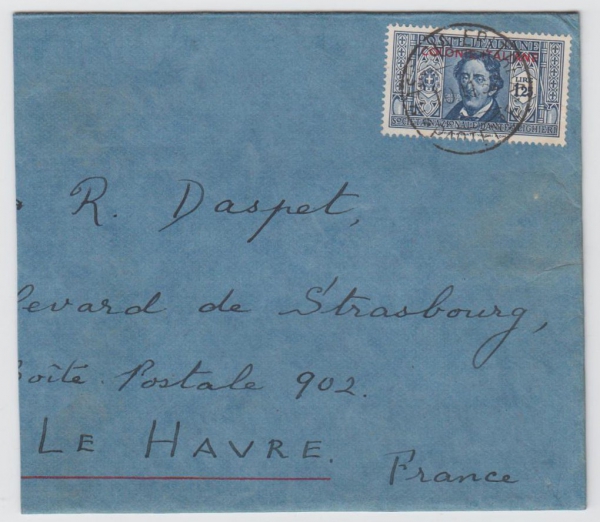 POSTE ITALIANE
COLONIE ITALIANE
LIRE
1,25
R. Daspet,
levard de Strasbourg,
Boîte Postale 902.
LE HAVRE.
France